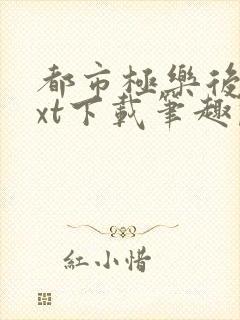 都市極樂後
xt下載筆趣
紅小惜